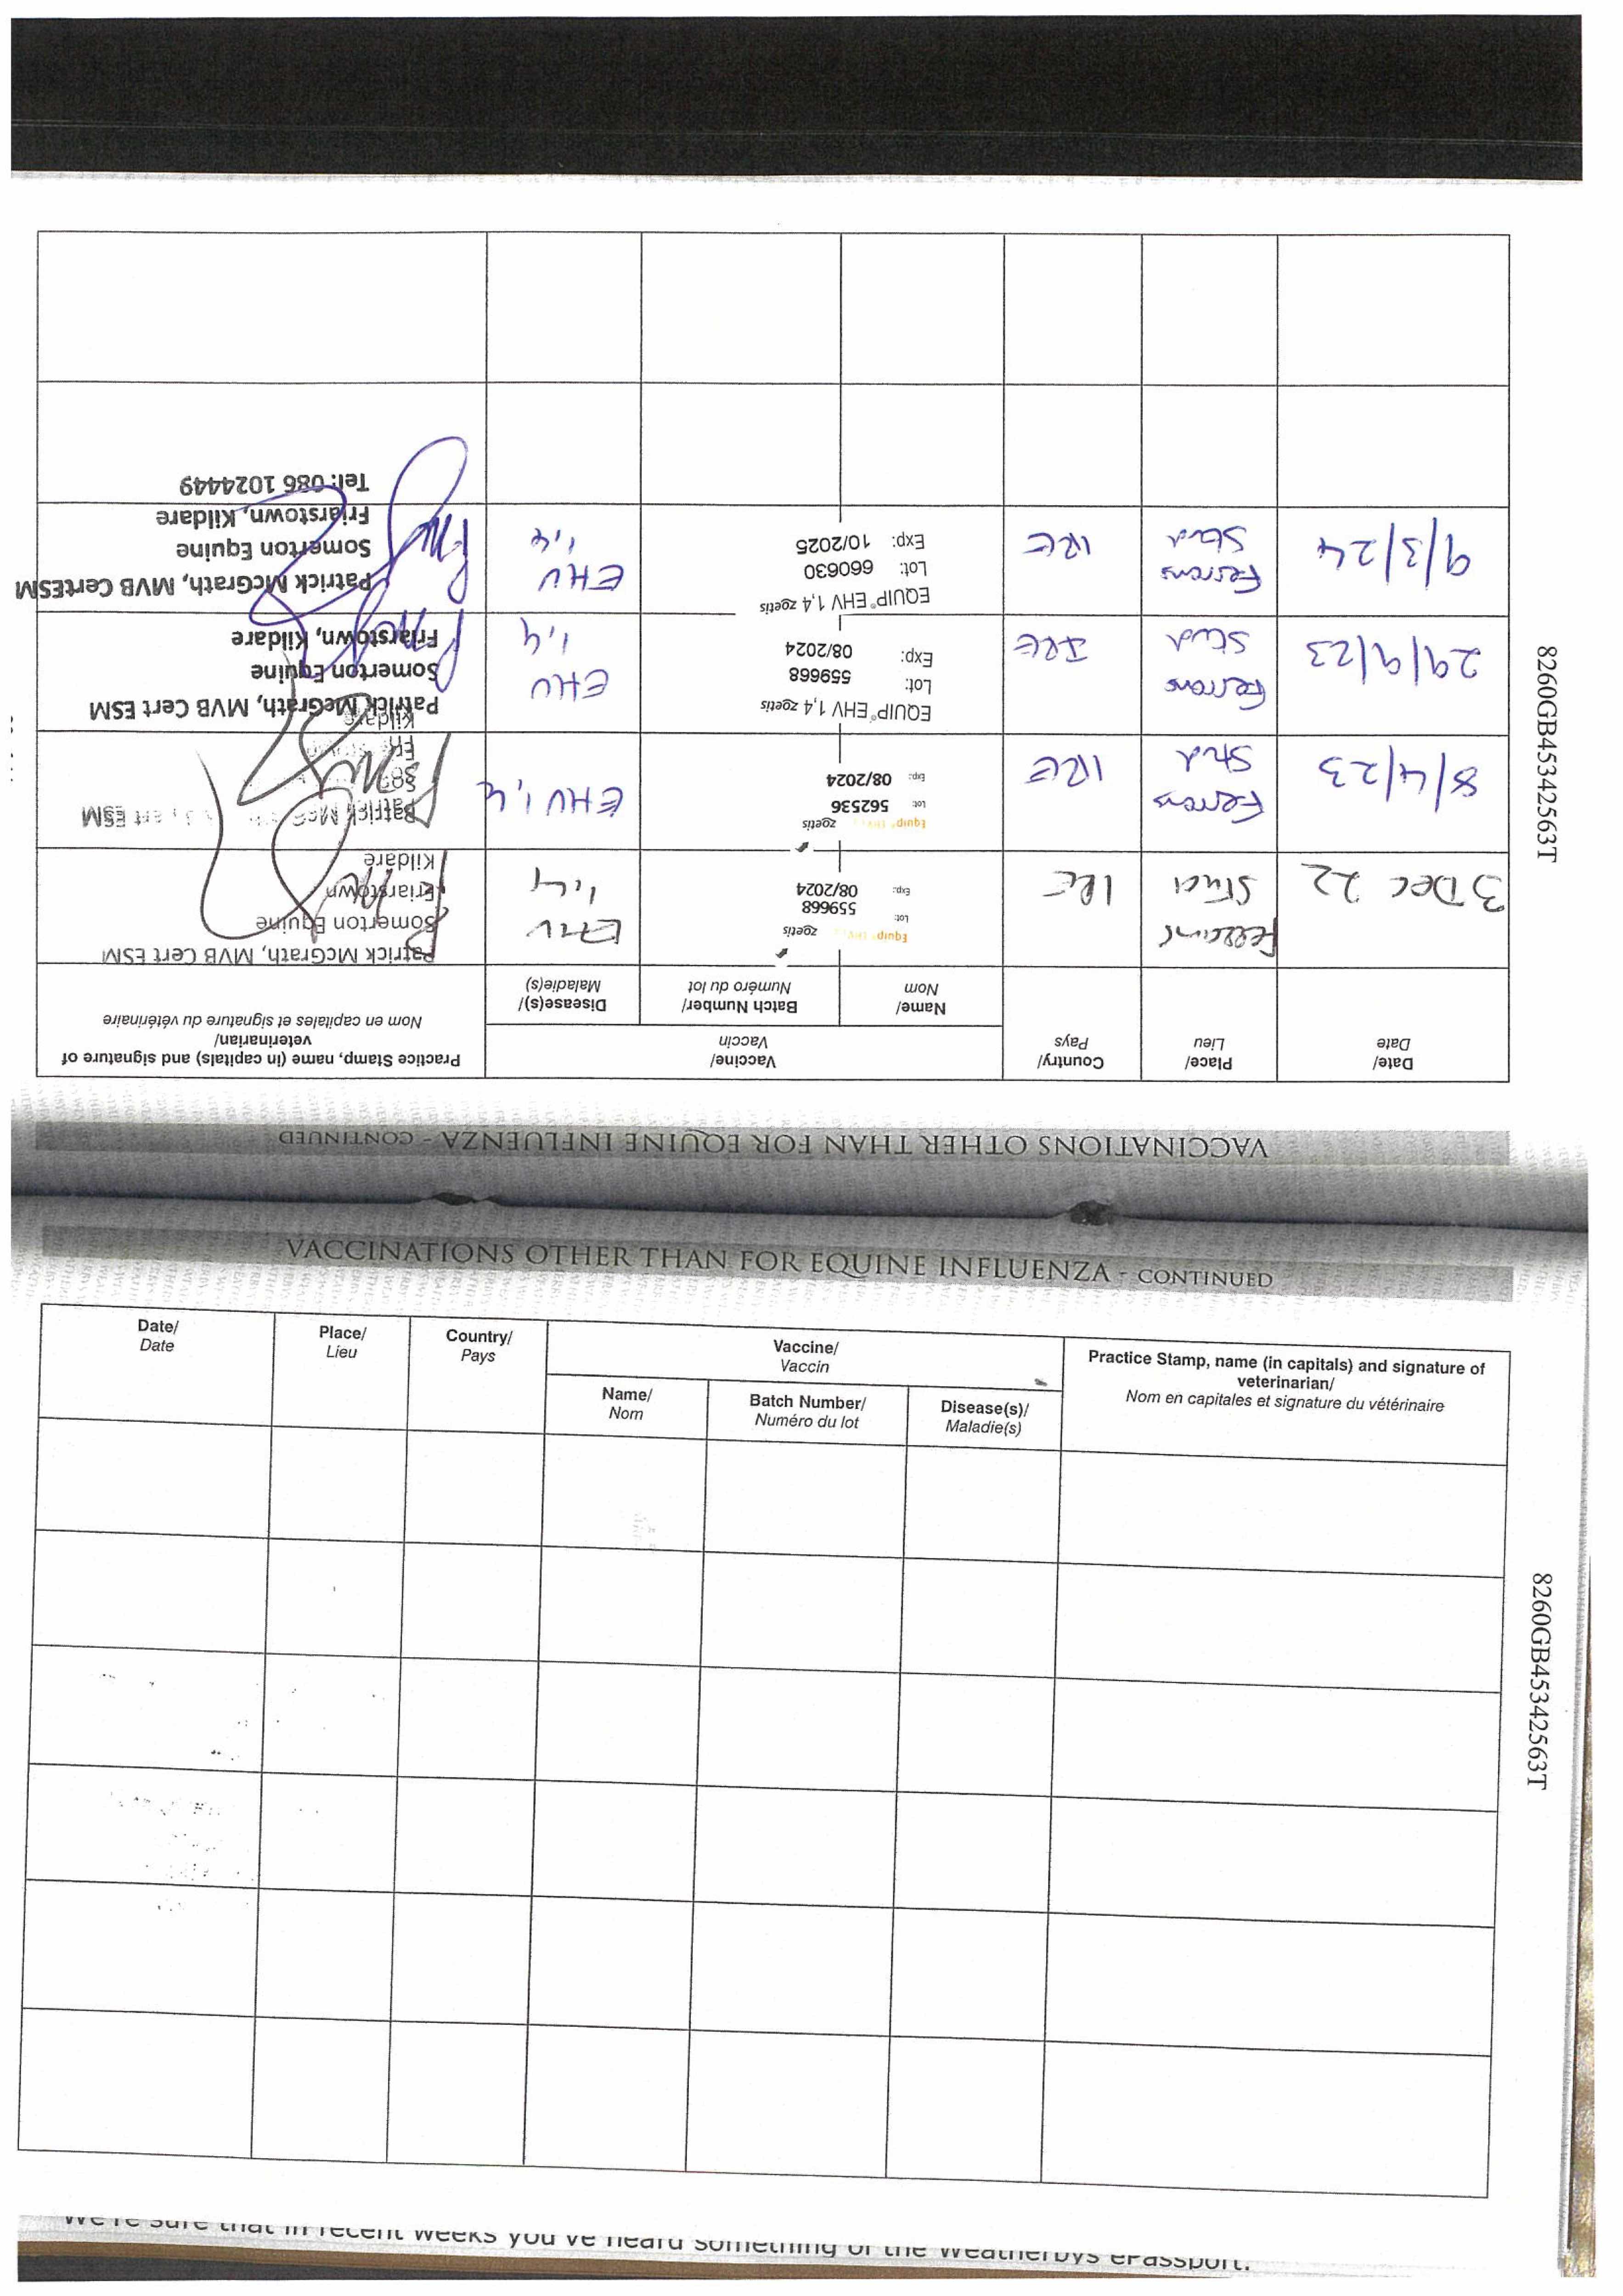 VACCINATIONS OTHER THAN FOR EQUINE INFLUENZA - CONTINUED
Date/
Date
Place/
Lieu
Country/
Pays
Vaccine/
Vaccin
Name/
Nom
Batch Number/
Numéro du lot
Disease(s)/
Maladie(s)
Practice Stamp, name (in capitals) and signature of
veterinarian/
Nom en capitales et signature du vétérinaire
3 Dec 22
Ferrans
Stud
IRE
Equip EHV zoetis
Lot: 559668
Exp: 08/2024
EHV
1,4
Patrick McGrath, MVB Cert ESM
Somerton Equine
Friarstown
Kildare
8/4/23
Ferrans
Stud
IRE
Equip EHV zoetis
Lot: 562536
Exp: 08/2024
EHV 1,4
Patrick McG ert ESM
Kildare
29/9/23
Ferrans
Stud
IRE
EQUIP® EHV 1,4 zoetis
Lot: 559668
Exp: 08/2024
EHV
1,4
Patrick McGrath, MVB Cert ESM
Somerton Equine
Friarstown, Kildare
9/3/24
Ferrans
Stud
IRE
EQUIP® EHV 1,4 zoetis
Lot: 660630
Exp: 10/2025
EHV
1,4
Patrick McGrath, MVB CertESM
Somerton Equine
Friarstown, Kildare
Tel: 086 1024449
8260GB45342563T
VACCINATIONS OTHER THAN FOR EQUINE INFLUENZA - CONTINUED
Date/
Date
Place/
Lieu
Country/
Pays
Vaccine/
Vaccin
Name/
Nom
Batch Number/
Numéro du lot
Disease(s)/
Maladie(s)
Practice Stamp, name (in capitals) and signature of
veterinarian/
Nom en capitales et signature du vétérinaire
8260GB45342563T
We're sure that in recent weeks you've heard something of the Weatherbys ePassport.